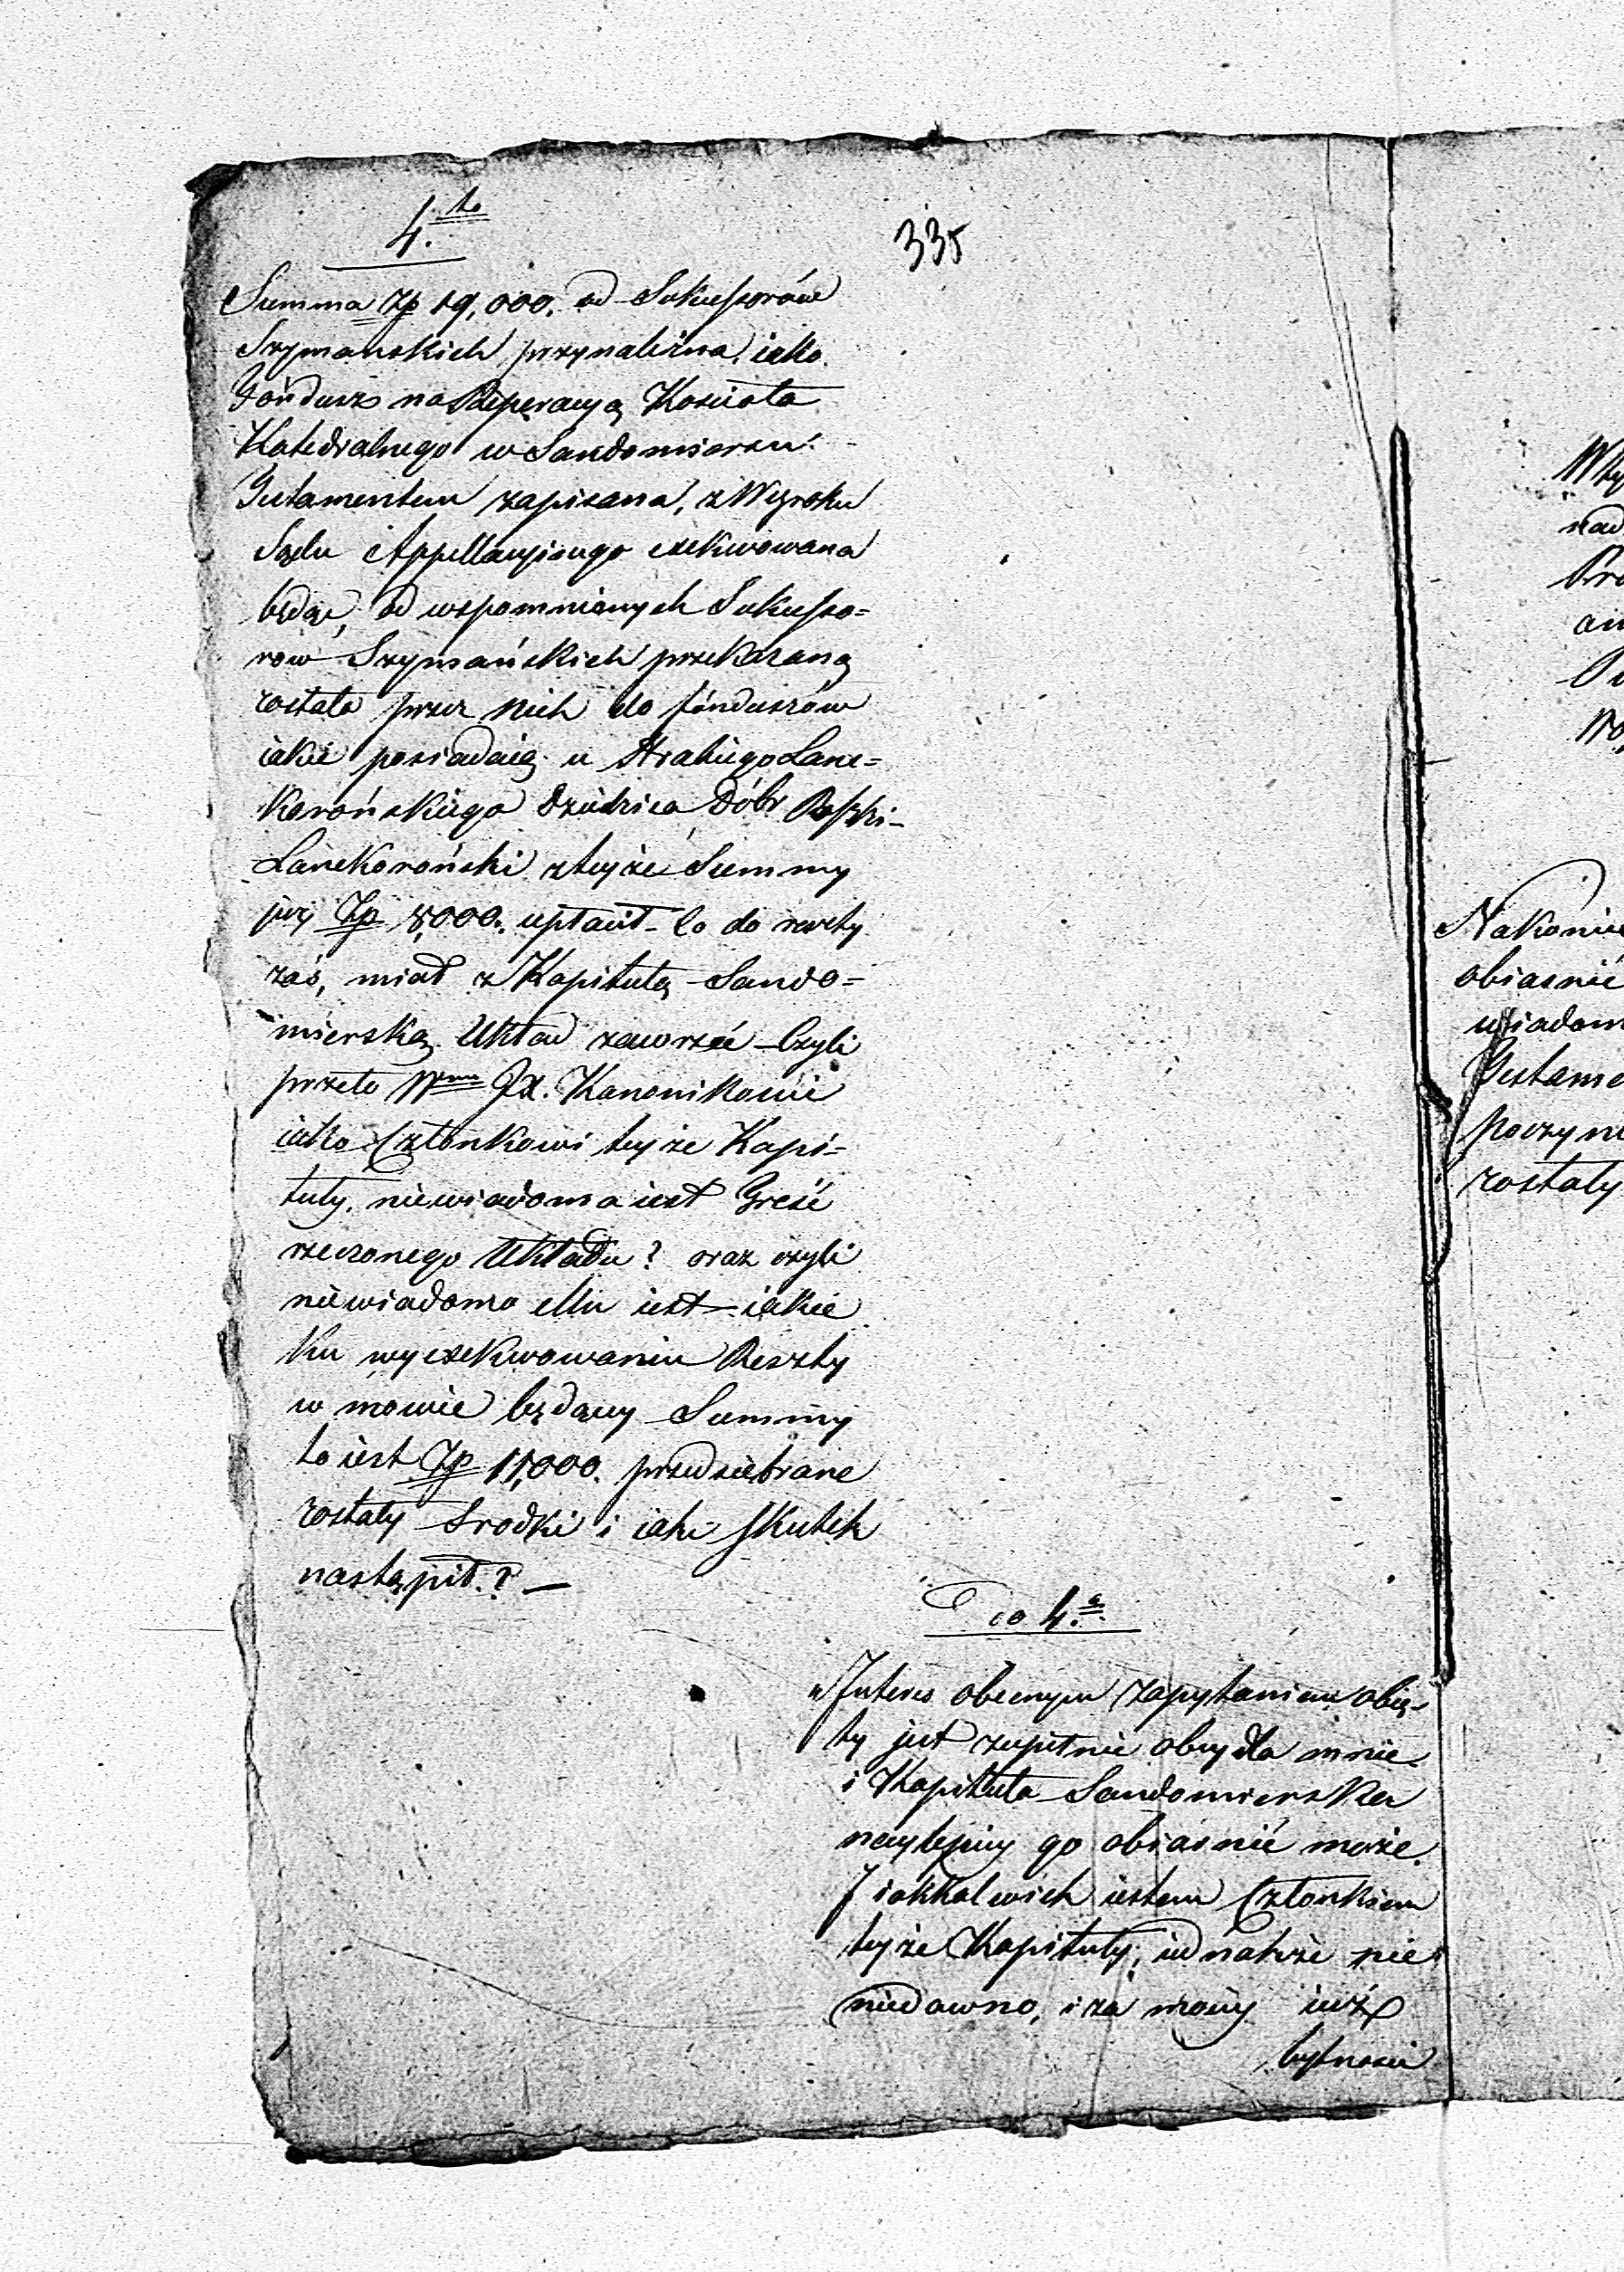 4.to
335
Summa Zp 19,000. od Sukcessorów
Szymanskich przynależna, iako
Fóndusz na Reperacyą Koscioła
Katedralnego w Sandomierzu
Testamentem zapisana, z Wyroku
Sądu Appellacyinego exekwowana
będąc, od wspomnionych Sukcesso=
row Szymańskich przekazaną
została przez nich do fónduszów
iakie posiadaią u Hrabiego Lanc=
korońskiego Dziedzica Dóbr
Lanckoroński z teyże Summy
już Zp 8,000. upłacił - Co do reszty
zaś, miał z Kapitułą Sando=
mierską Układ zawrzéć - Czyli
przeto Wmu JX. Kanonikowi
iako Członkowi teyże Kapi=
tuły, niewiadoma iest Treść
rzeczonego Układu? oraz czyli
niewiadomo Mu iest iakie
Ku wyexekwowaniu Reszty
w mowie będącey Summy
to iest Zp 11,000. przedsiębrane
zostały Srodki i iaki skutek
nastąpił.? —
Do 4.o
Interes obecnym zapytaniem obię-
ty jest zupełnie obcy dla mnie
i Kapituła Sandomierska
naylepiey go obiasnić może.
J iakkolwiek iestem Członkiem
teyże Kapituły, iednakże nie
niedawno, i za moiey iuż
bytnosci
Nakonie
obiasnić
uwiadom
Testame
poczyni
zostały